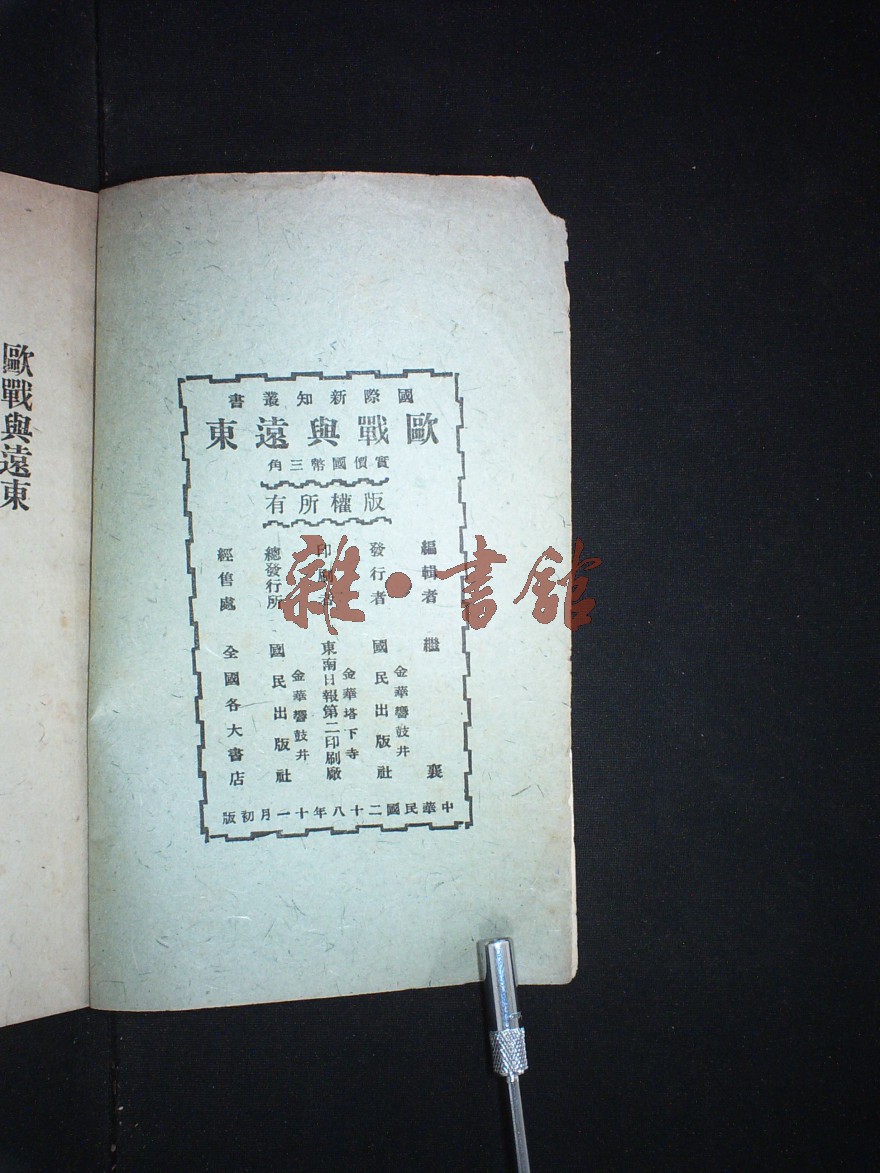 國際新知叢書
歐戰與遠東
實價國幣三角
版權所有
編輯者 繼襄
發行者 國民出版社
金華響鼓井
印刷者 東南日報第二印刷廠
金華塔下寺
總發行所 國民出版社
金華響鼓井
經售處 全國各大書店
中華民國二十八年十一月初版
歐戰與遠東
雜·書館